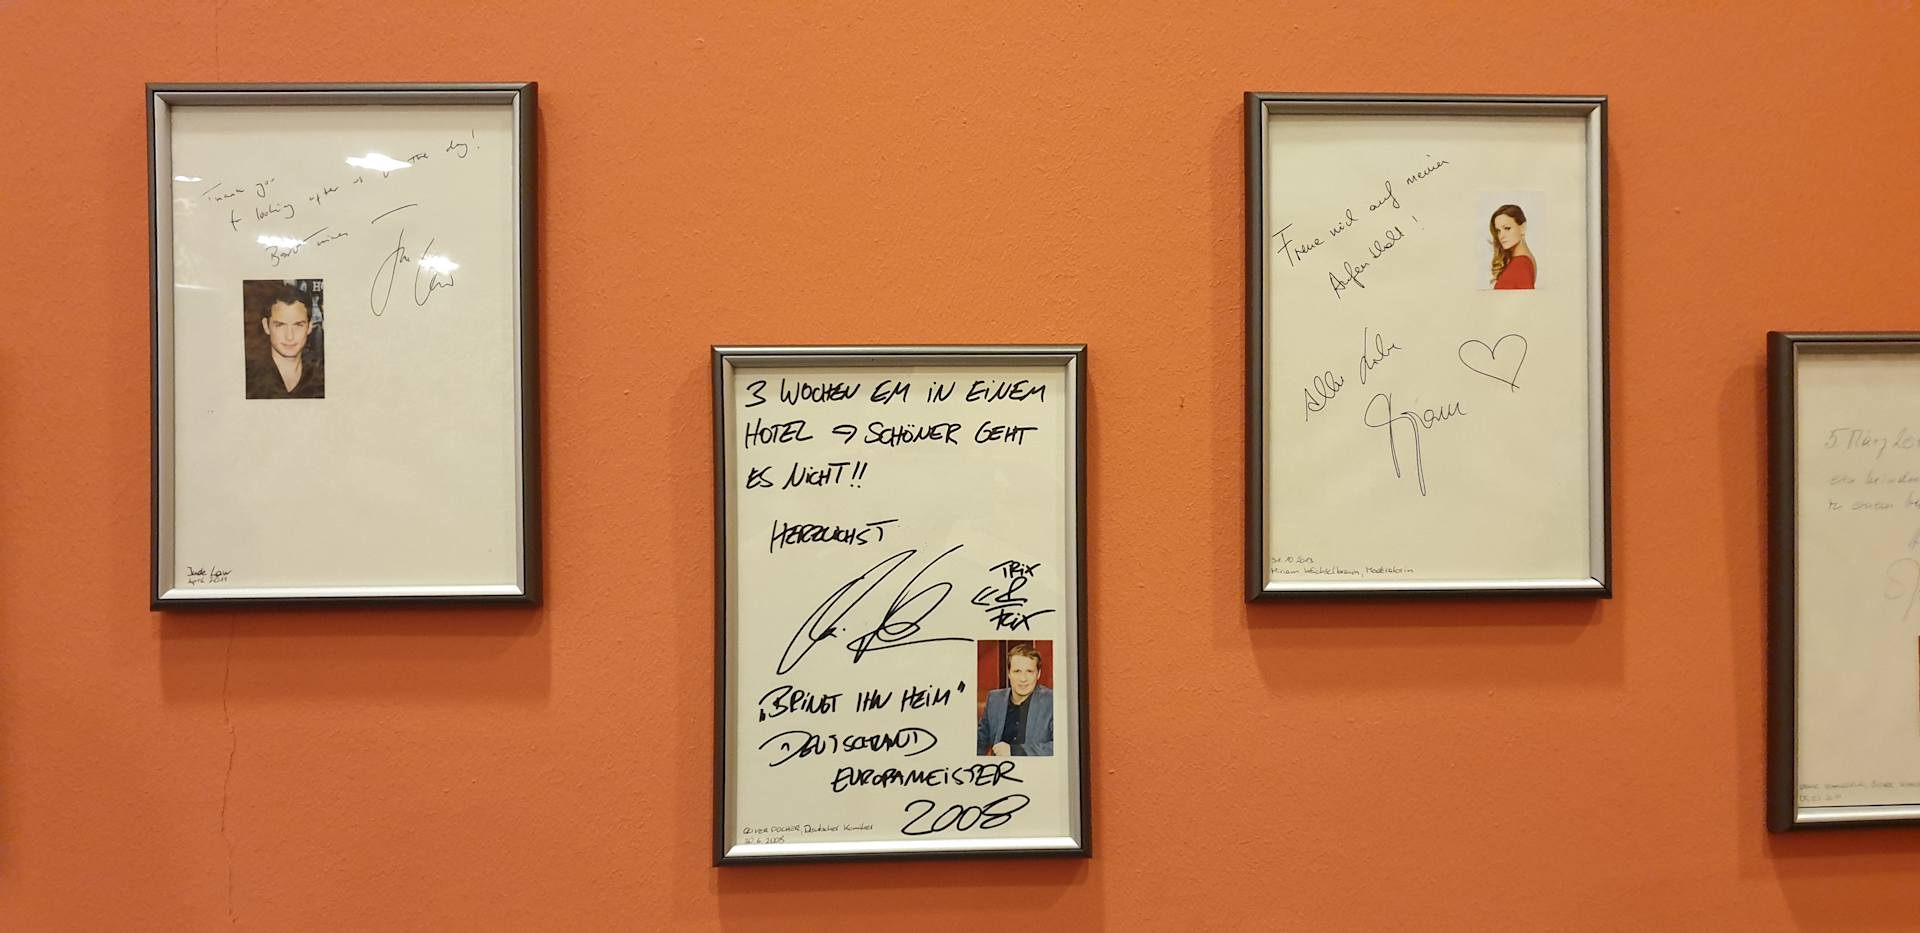 Thank you
for looking after us for the day!
Best Wishes
Jude Law
Jude Law
April 2011
3 WOCHEN EM IN EINEM
HOTEL → SCHÖNER GEHT
ES NICHT!!
HERZLICHST
TRIX
&
TRIX
„BRINGT IHN HEIM“
DEUTSCHLAND
EUROPAMEISTER
2008
OLIVER POCHER, Deutscher Komiker
30.6.2008
Freue mich auf meinen
Aufenthalt!
Alles Liebe
Miriam
31.10.2013
Miriam Weichselbraun, Moderatorin
5. März